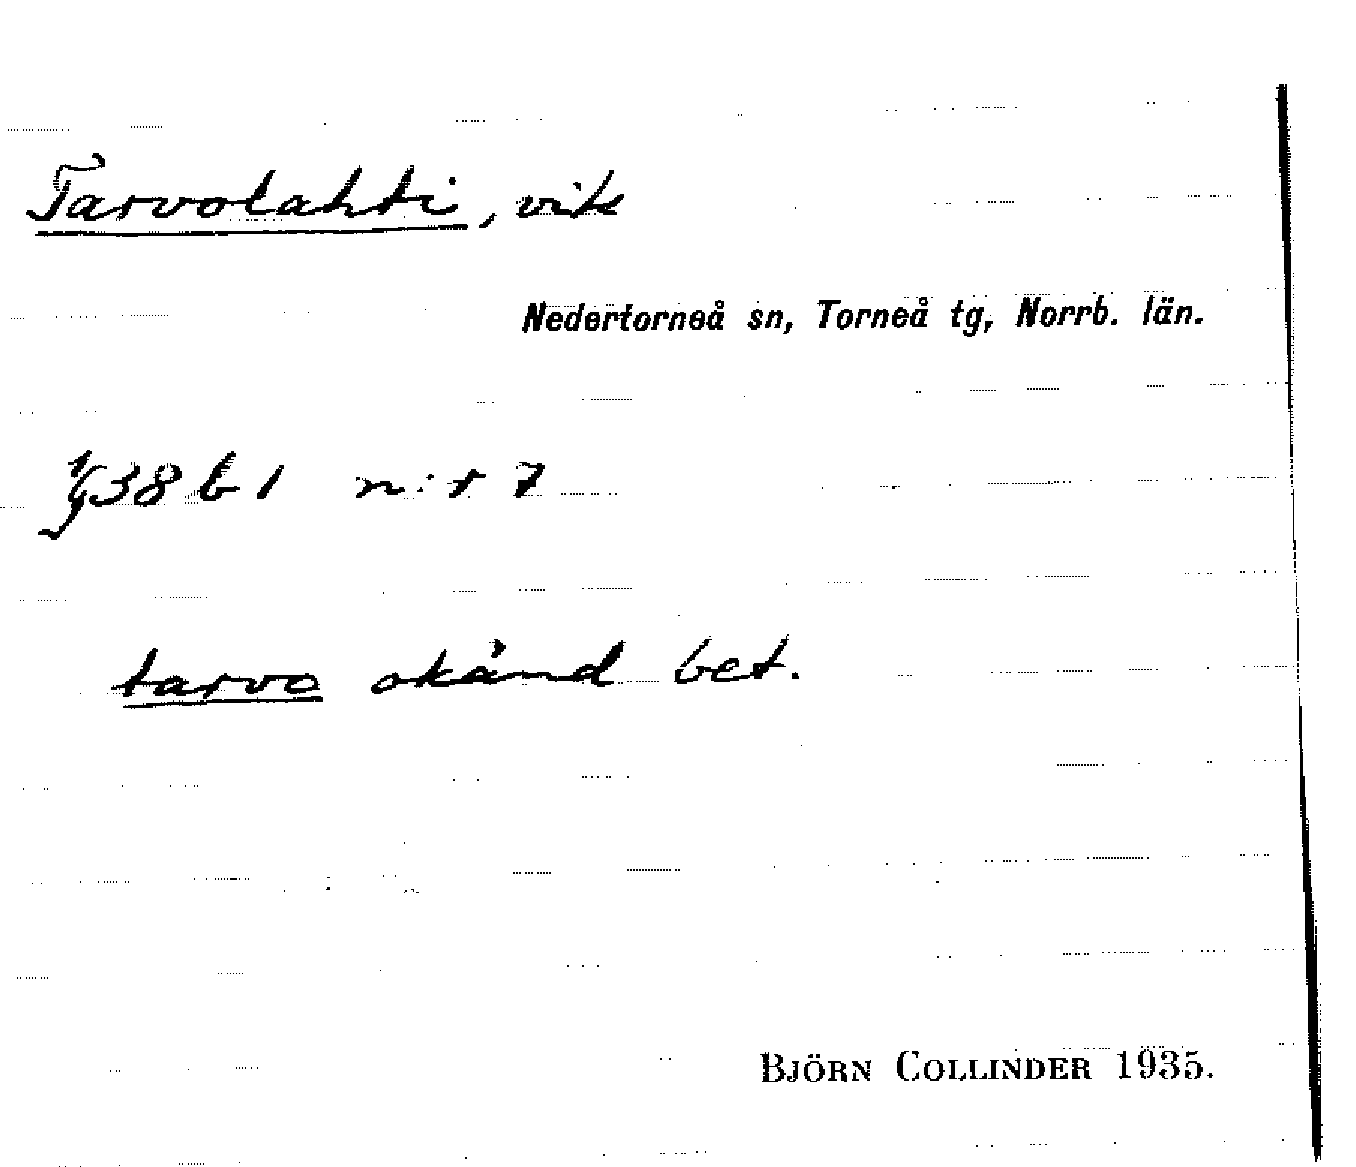 Tarvolahti, vik
Nedertorneå sn, Torneå tg, Norrb. län.
38 b 1 n:r 7
tarvo okänd bet.
BJÖRN COLLINDER 1935.